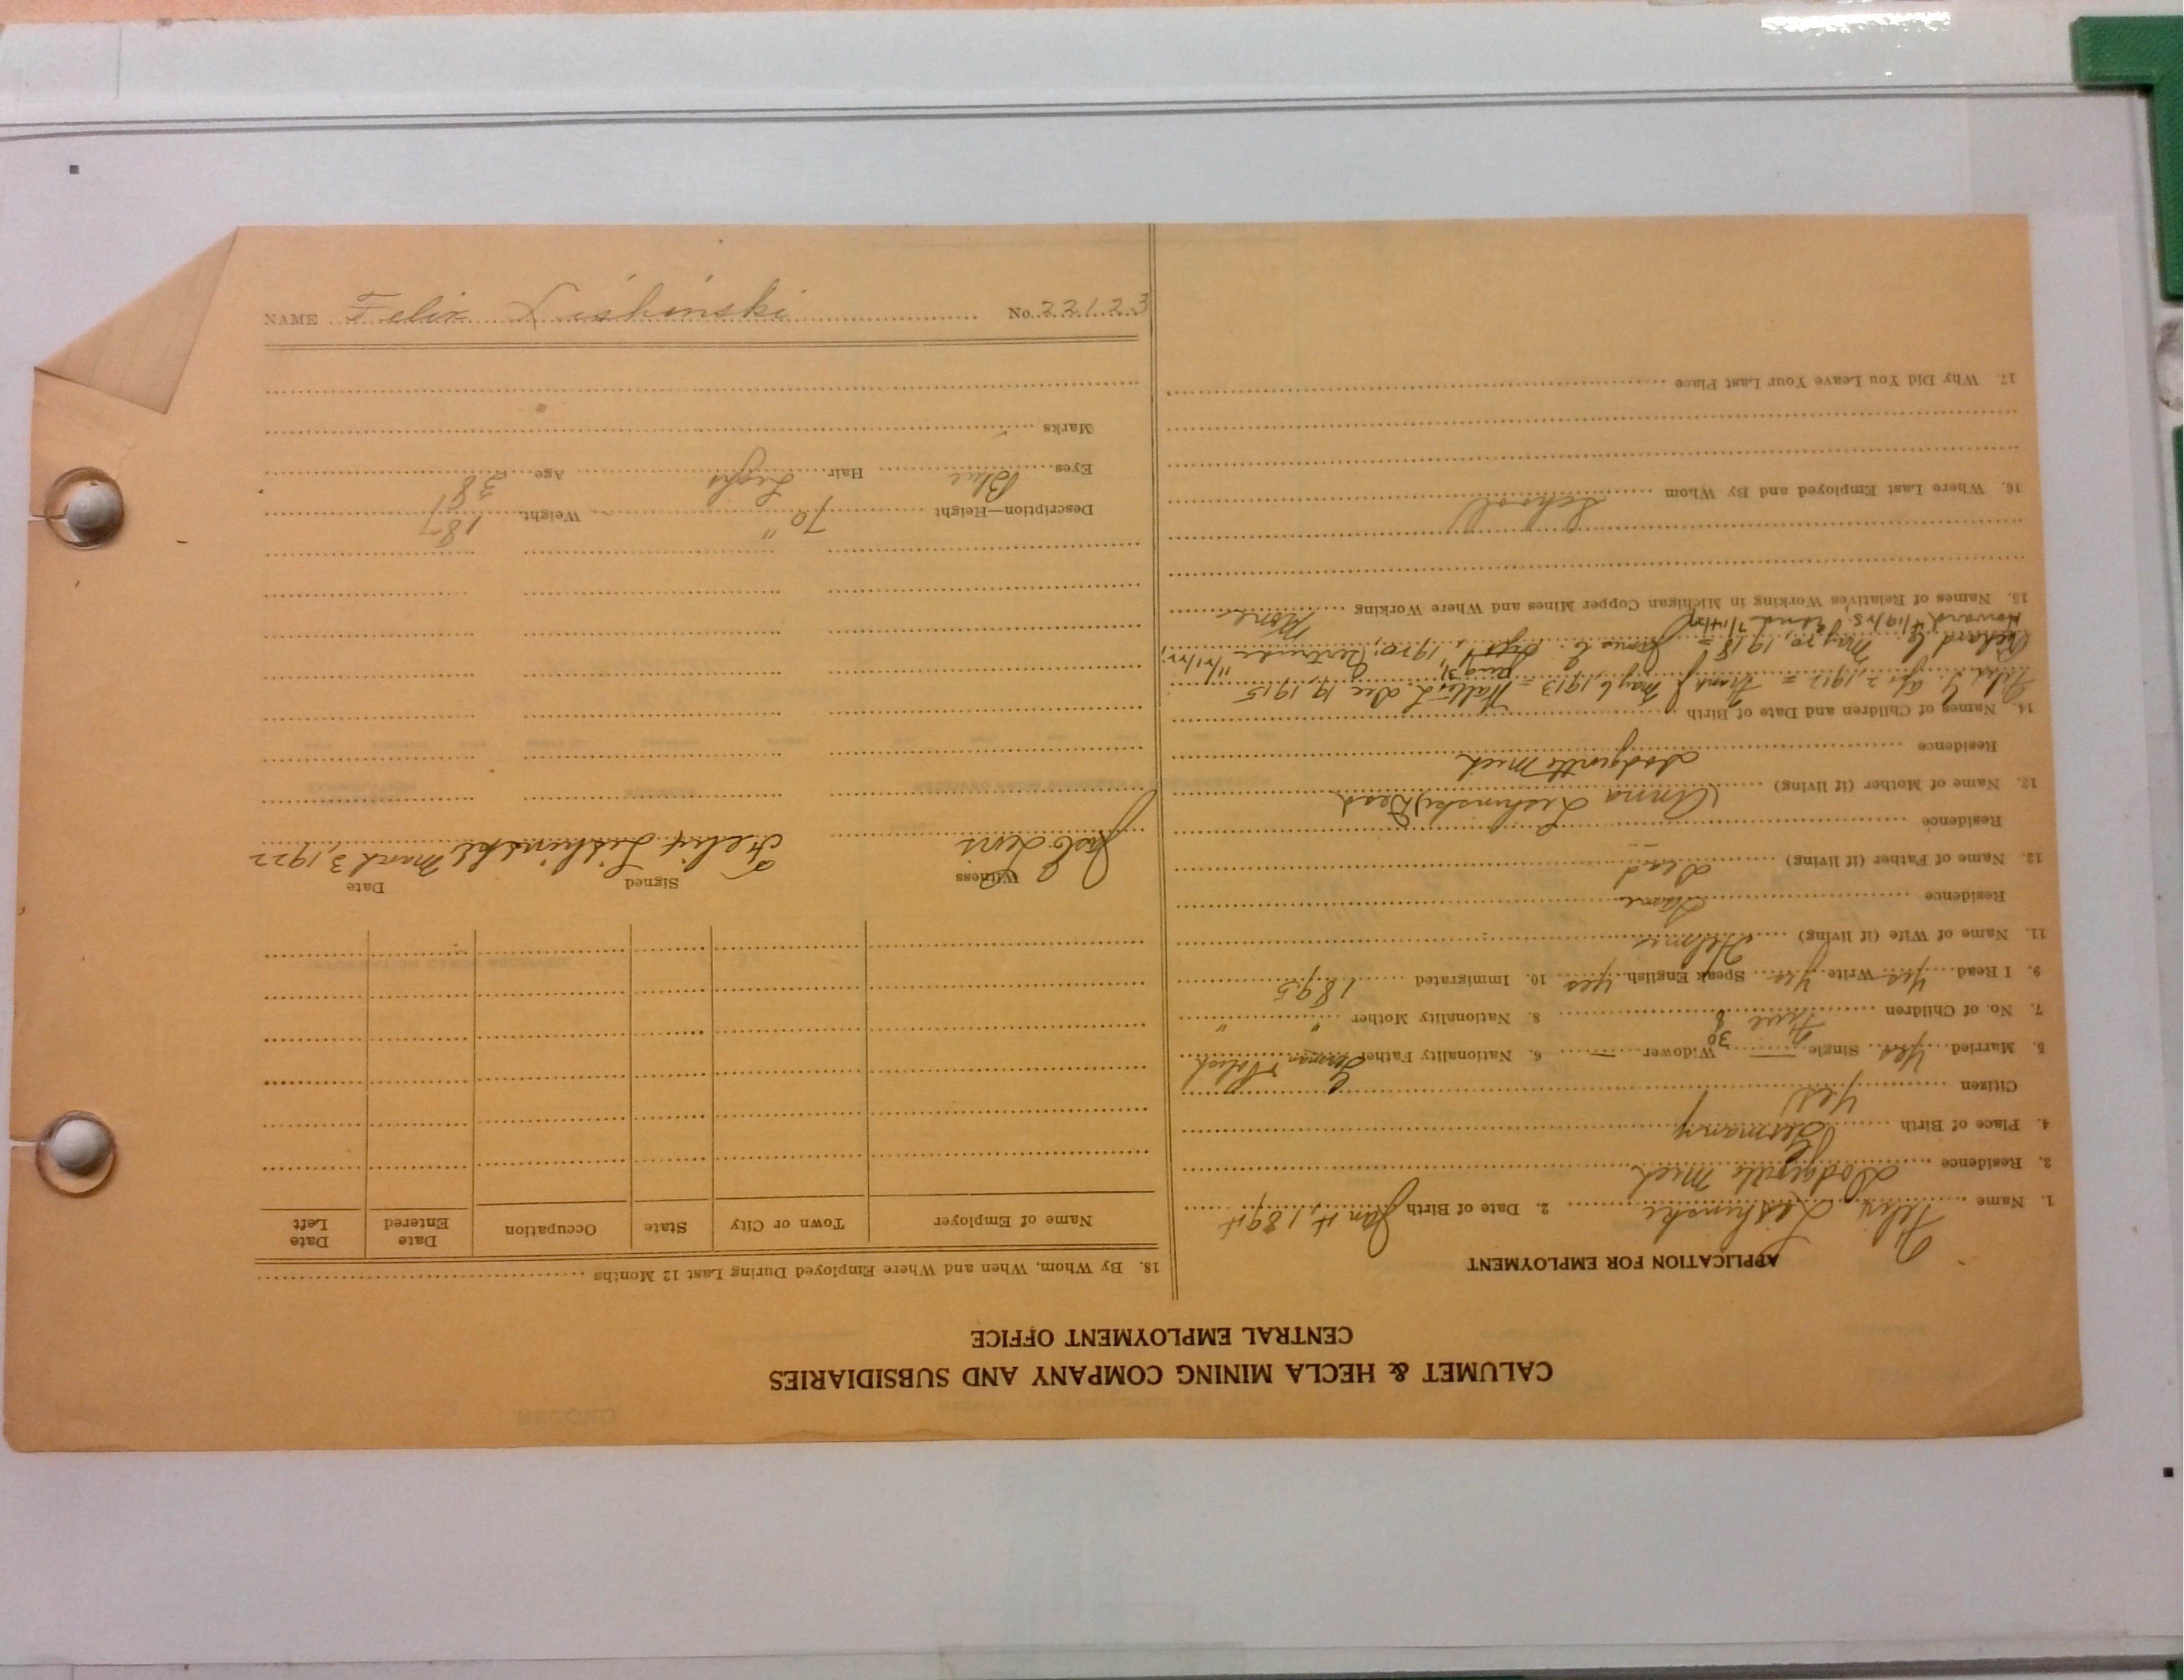 CALUMET & HECLA MINING COMPANY AND SUBSIDIARIES
CENTRAL EMPLOYMENT OFFICE
APPLICATION FOR EMPLOYMENT
1. Name Felix Lishinski 2. Date of Birth Jan 4, 1894
3. Residence Dodgeville Mich
4. Place of Birth Germany
Citizen Yes
5. Married Yes Single — Widower — 6. Nationality Father German Polish
7. No. of Children Five 8 8. Nationality Mother " "
9. I Read Yes Write Yes Speak English Yes 10. Immigrated 1895
11. Name of Wife (if living) Helmie
Residence Same
12. Name of Father (if living) Dead
Residence
13. Name of Mother (if living) (Anna Lishinski) Dead
Residence Dodgeville Mich
14. Names of Children and Date of Birth
Felix Y. Apr 2, 1912 = Frank J May 6, 1913 = Walter L Dec 19, 1915
Richard C May 20, 1918 = James C. Aug 31, 1920, Gertrude
Howard
15. Names of Relatives Working in Michigan Copper Mines and Where Working None
16. Where Last Employed and By Whom School
17. Why Did You Leave Your Last Place
18. By Whom, When and Where Employed During Last 12 Months
Name of Employer Town or City State Occupation Date Entered Date Left
Witness Signed Date
Jacob Levis Felix Lishinski March 3, 1922
Description—Height 70" Weight 187
Eyes Blue Hair Light Age 38
Marks
NAME Felix Lishinski No. 22123